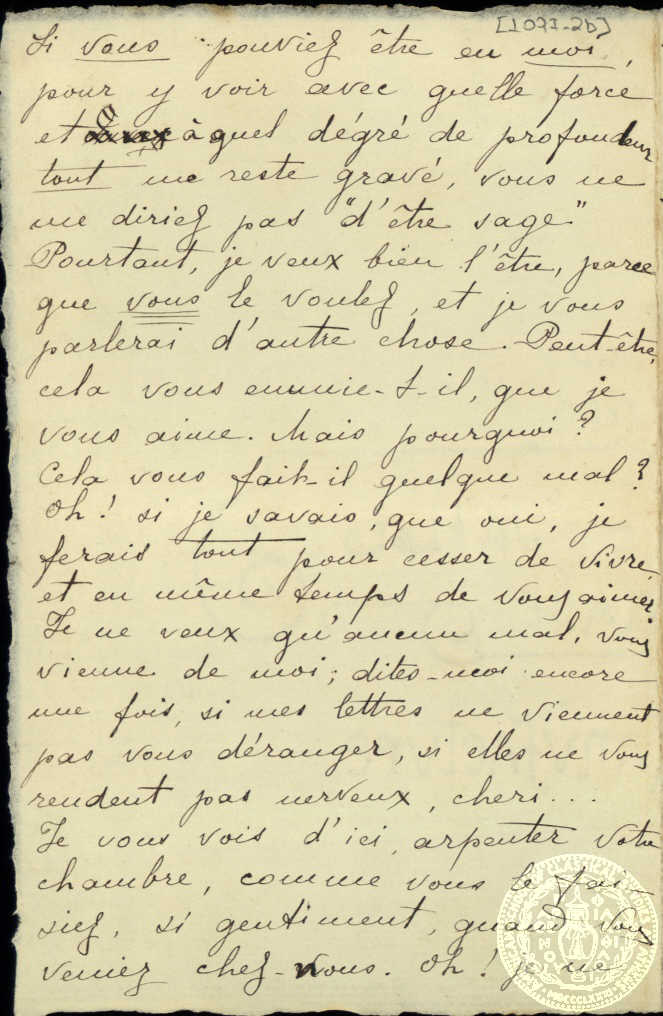 [1073-2b]
Si vous pouviez être en moi,
pour y voir avec quelle force
et à quel dégré de profondeur
tout me reste gravé, vous ne
me diriez pas "d'être sage"
Pourtant, je veux bien l'être, parce
que vous le voulez, et je vous
parlerai d'autre chose. Peut-être,
cela vous ennuie-t-il, que je
vous aime. Mais pourquoi?
Cela vous fait-il quelque mal?
Oh! si je savais, que oui, je
ferais tout pour cesser de vivre,
et en même temps de vous aimer.
Je ne veux qu'aucun mal, vous
vienne de moi; dites-moi encore
une fois, si mes lettres ne viennent
pas vous déranger, si elles ne vous
rendent pas nerveux, cheri...
Je vous vois d'ici, arpenter votre
chambre, comme vous le fai-
siez, si gentiment, quand vous
veniez chez-nous. Oh! je ne